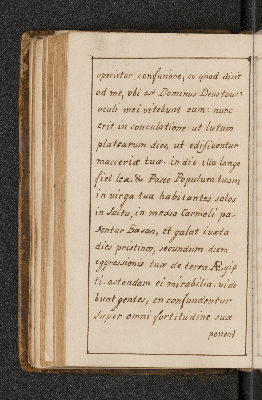 operietur confusione, eo quod dicit
ad me, vbi est Dominus Deus tuus
oculi mei videbunt eam: nunc
erit in conculatione ut lutum
platearum dies, ut edificentur
maceriæ tuæ. in die illa longe
fiet lex. & Pasce Populum tuum
in virga tua habitantes solos
in saltu, in medio Carmeli pa-
scentur Basan, et galat iuxta
dies pristinos, secundum diem
eggressionis tuæ de terra Ægip
ti. ostendam ei mirabilia. vide
bunt gentes, en confundentur
super omni fortitudine sua
ponent